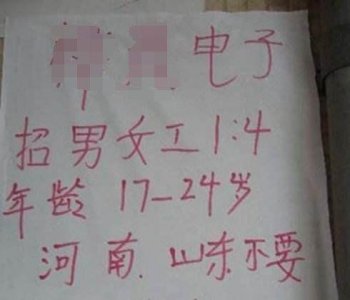 电子
招男女工1:4
年龄 17-24岁
河南.山东不要